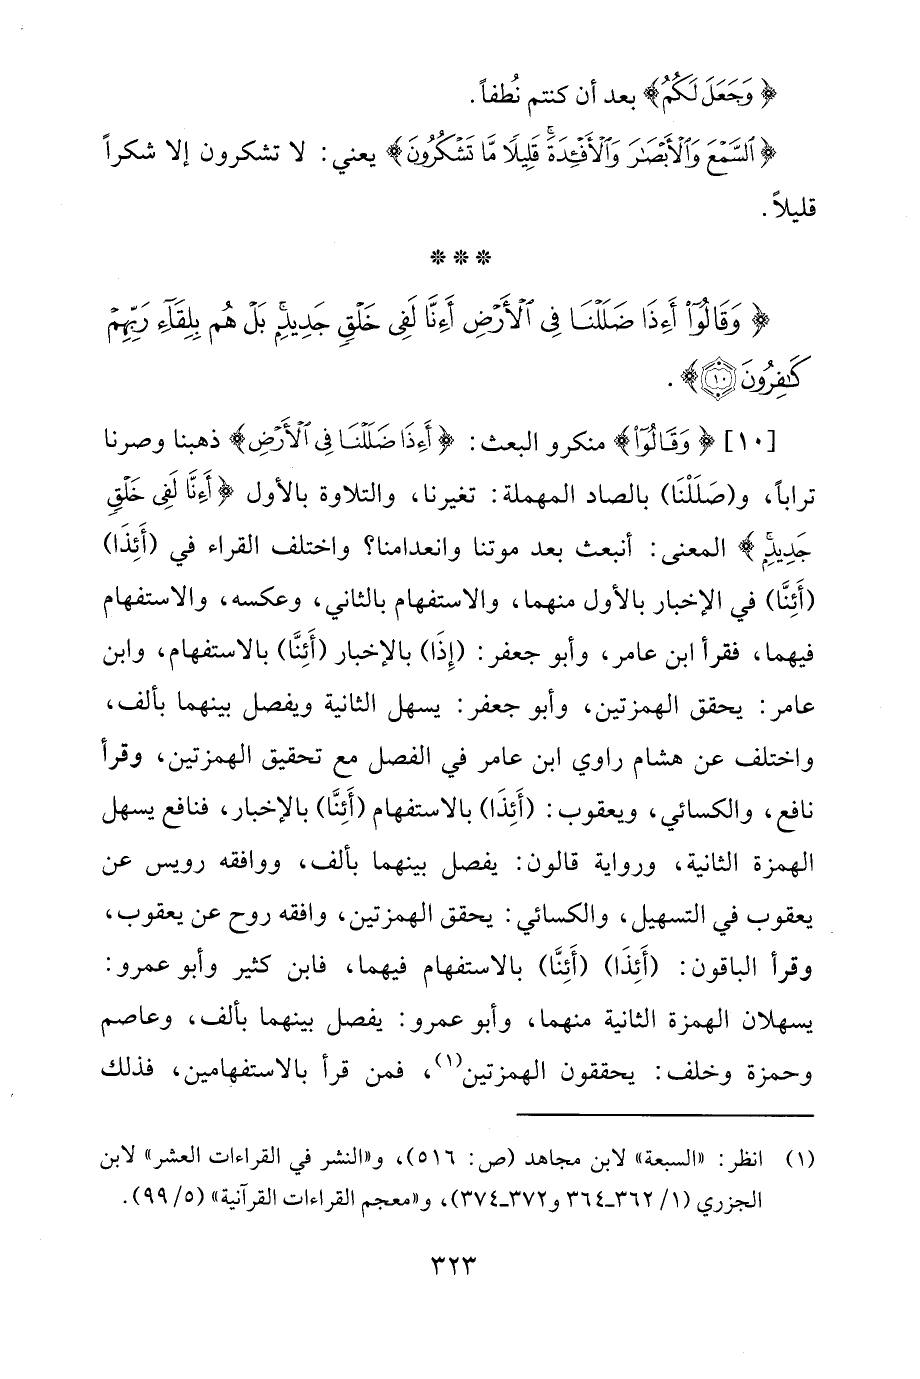 ﴿ وَجَعَلَ لَكُمُ﴾ بعد أن كنتم نُطفاً.
﴿ ٱلسَّمْعَ وَٱلْأَبْصَٰرَ وَٱلْأَفْـِٔدَةَ ۚ قَلِيلًا مَّا تَشْكُرُونَ﴾ يعني: لا تشكرون إلا شكراً
قليلاً.
* * *
﴿ وَقَالُوٓا۟ أَءِذَا ضَلَلْنَا فِى ٱلْأَرْضِ أَءِنَّا لَفِى خَلْقٍ جَدِيدٍۭ ۚ بَلْ هُم بِلِقَآءِ رَبِّهِمْ
كَٰفِرُونَ ۝١٠﴾.
[١٠] ﴿ وَقَالُوٓا۟﴾ منكرو البعث: ﴿ أَءِذَا ضَلَلْنَا فِى ٱلْأَرْضِ﴾ ذهبنا وصرنا
تراباً، و(صَلَلْنَا) بالصاد المهملة: تغيرنا، والتلاوة بالأول ﴿ أَءِنَّا لَفِى خَلْقٍ
جَدِيدٍۭ ۚ ﴾ المعنى: أنبعث بعد موتنا وانعدامنا؟ واختلف القراء في (أَئِذَا)
(أَئِنَّا) في الإخبار بالأول منهما، والاستفهام بالثاني، وعكسه، والاستفهام
فيهما، فقرأ ابن عامر، وأبو جعفر: (إِذَا) بالإخبار (أَئِنَّا) بالاستفهام، وابن
عامر: يحقق الهمزتين، وأبو جعفر: يسهل الثانية ويفصل بينهما بألف،
واختلف عن هشام راوي ابن عامر في الفصل مع تحقيق الهمزتين، وقرأ
نافع، والكسائي، ويعقوب: (أَئِذَا) بالاستفهام (أَئِنَّا) بالإخبار، فنافع يسهل
الهمزة الثانية، ورواية قالون: يفصل بينهما بألف، ووافقه رويس عن
يعقوب في التسهيل، والكسائي: يحقق الهمزتين، وافقه روح عن يعقوب،
وقرأ الباقون: (أَئِذَا) (أَئِنَّا) بالاستفهام فيهما، فابن كثير وأبو عمرو:
يسهلان الهمزة الثانية منهما، وأبو عمرو: يفصل بينهما بألف، وعاصم
وحمزة وخلف: يحققون الهمزتين(١)، فمن قرأ بالاستفهامين، فذلك
(١) انظر: «السبعة» لابن مجاهد (ص: ٥١٦)، و«النشر في القراءات العشر» لابن
الجزري (١/ ٣٦٢ـ٣٦٤ و٣٧٢ـ٣٧٤)، و«معجم القراءات القرآنية» (٥/ ٩٩).
٣٢٣